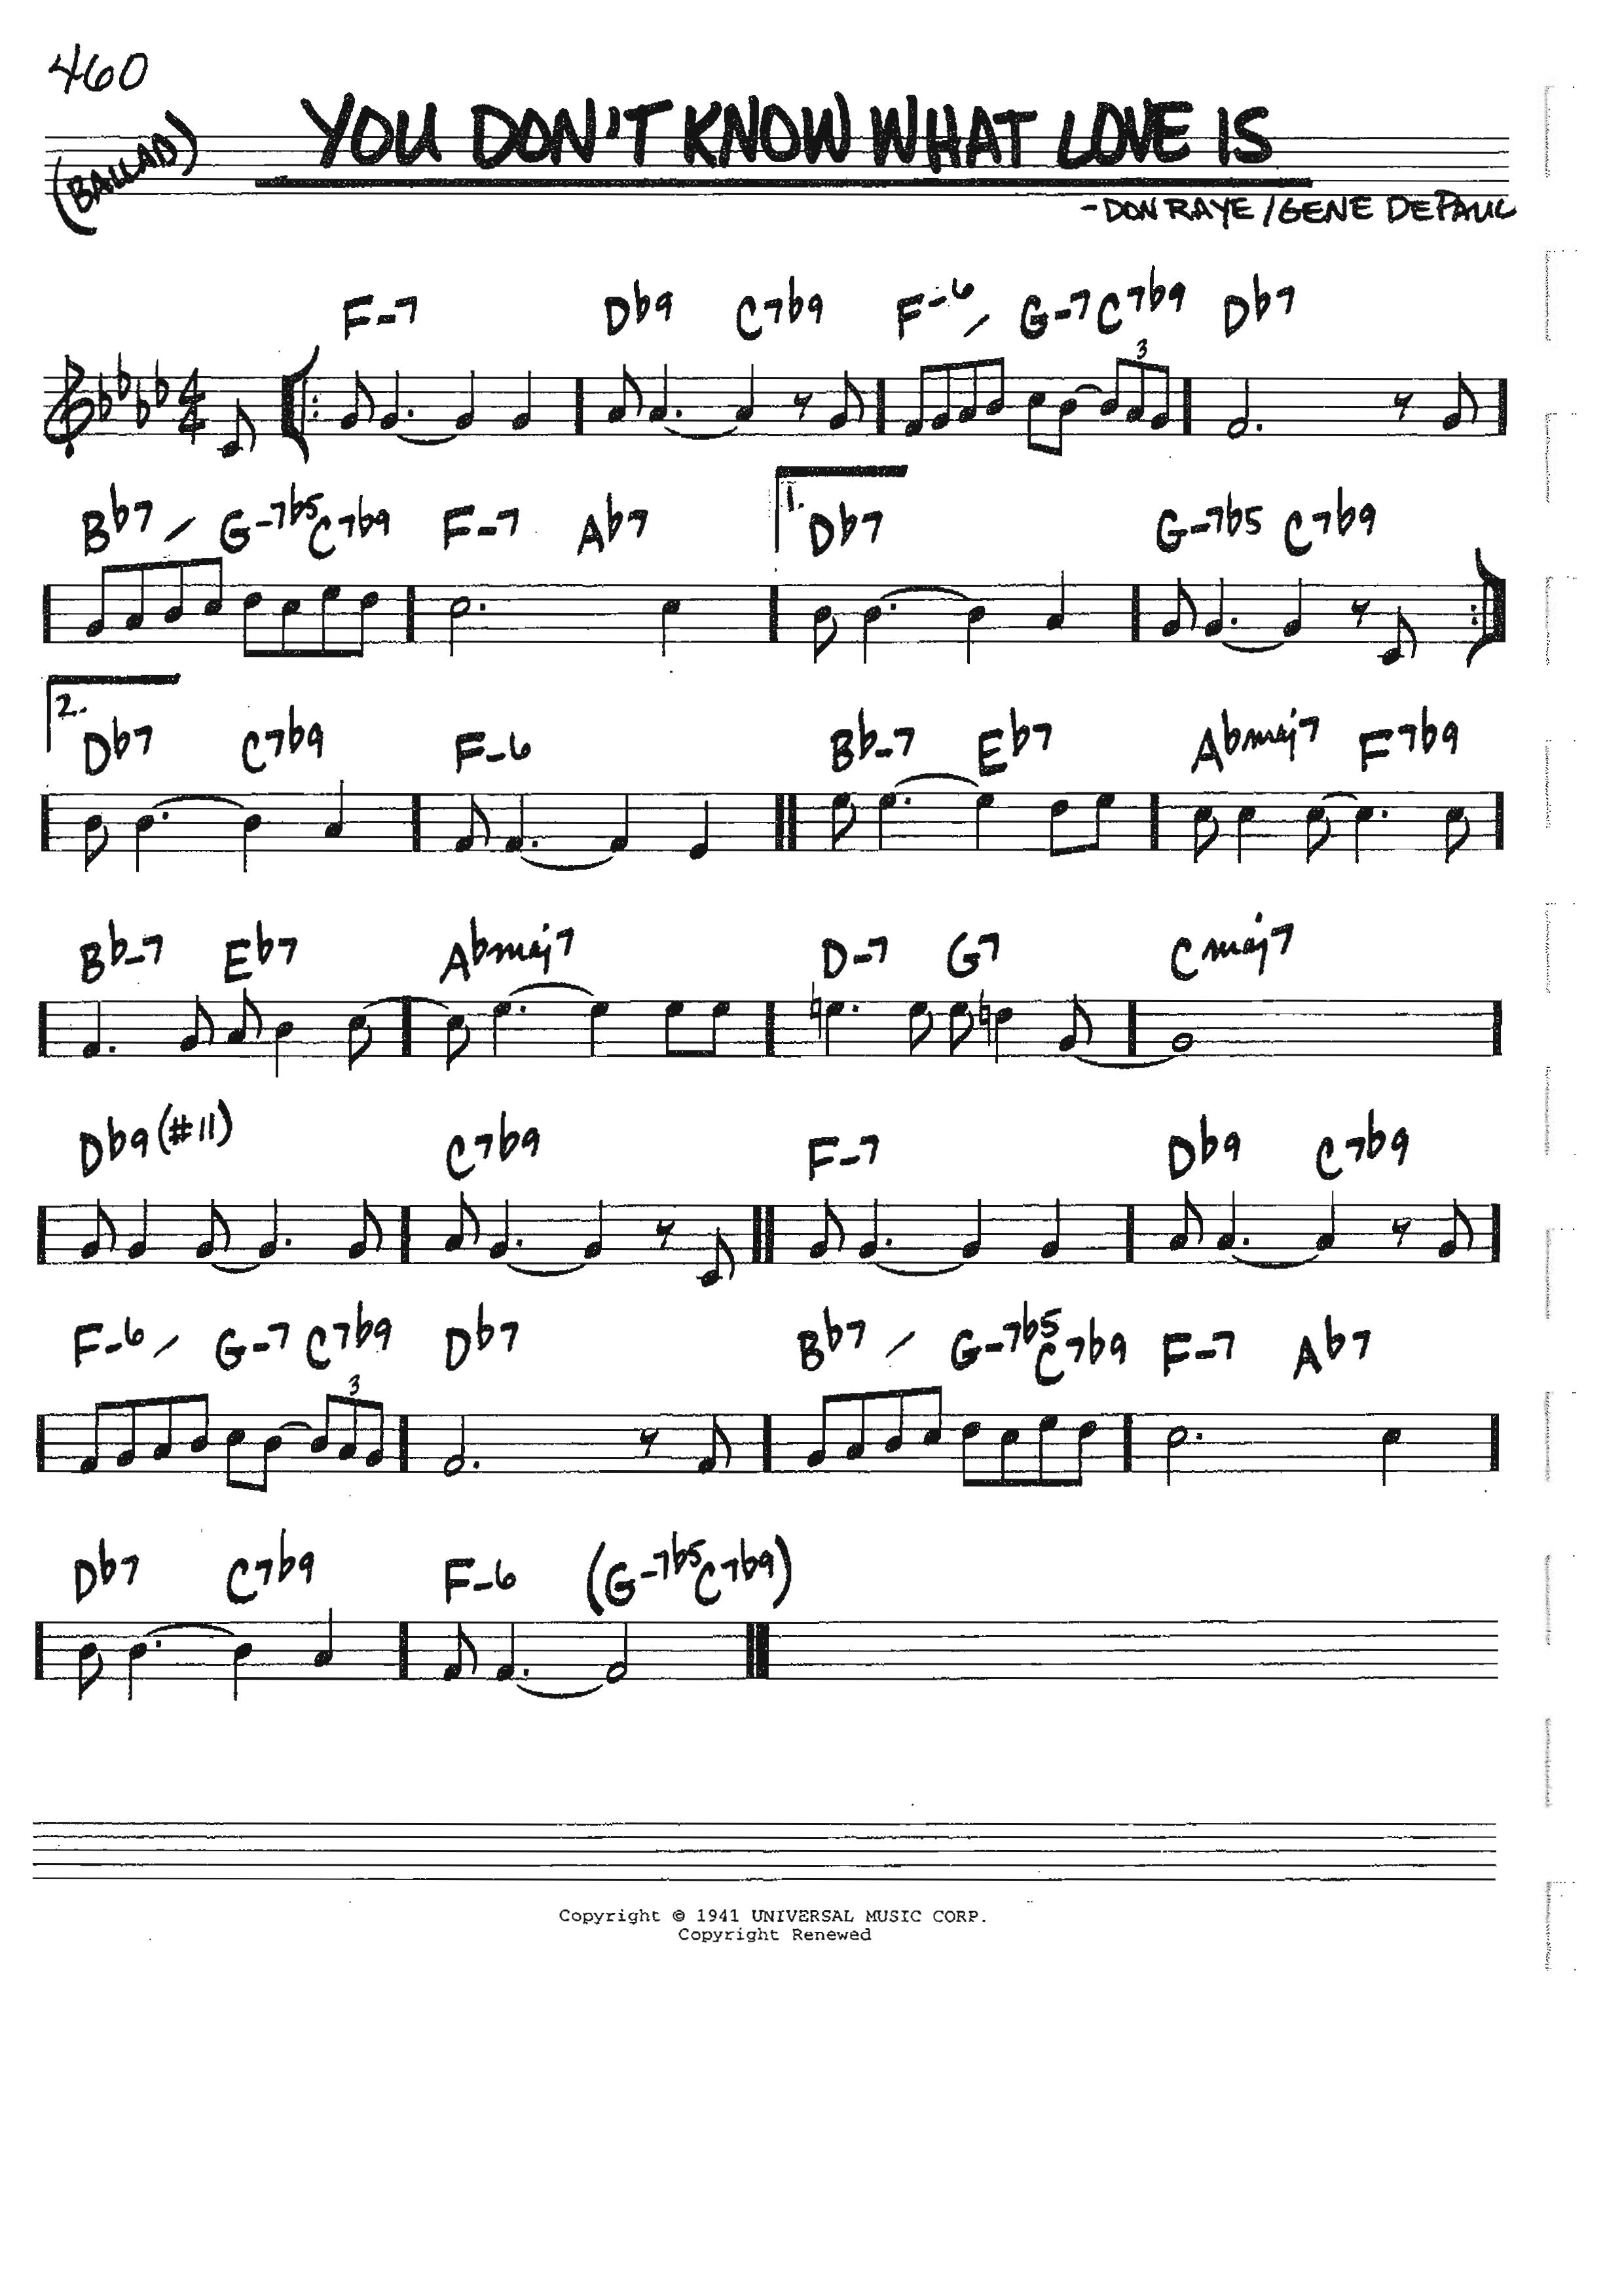 460
(BALLAD)
YOU DON'T KNOW WHAT LOVE IS
-DON RAYE/GENE DEPAUL
F-7 Db9 C7b9 F-6/ G-7 C7b9 Db7
4 4
3
Bb7 / G-7b5 C7b9 F-7 Ab7 1. Db7 G-7b5 C7b9
2.
Db7 C7b9 F-6 Bb-7 Eb7 Abmaj7 F7b9
Bb-7 Eb7 Abmaj7 D-7 G7 Cmaj7
Db9(#11) C7b9 F-7 Db9 C7b9
F-6/ G-7 C7b9 Db7 Bb7 / G-7b5 C7b9 F-7 Ab7
3
Db7 C7b9 F-6 (G-7b5 C7b9)
Copyright © 1941 UNIVERSAL MUSIC CORP.
Copyright Renewed